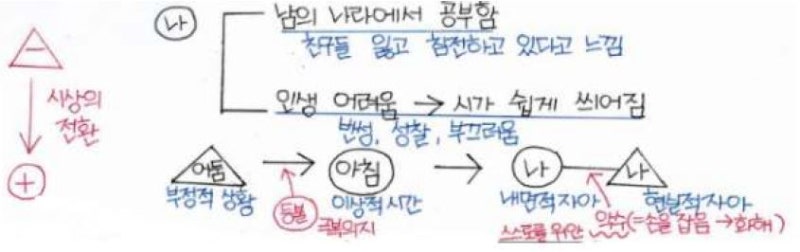 나 남의 나라에서 공부함
친구들 잃고 침전하고 있다고 느낌
시상의 전환
인생 어려움 → 시가 쉽게 씌어짐
반성, 성찰, 부끄러움
어둠 → 아침 → 나 — 나
부정적 상황 이상적 시간 내면적 자아 현실적 자아
등불 극복의지
스스로를 위안 악수(=손을 잡음 → 화해)